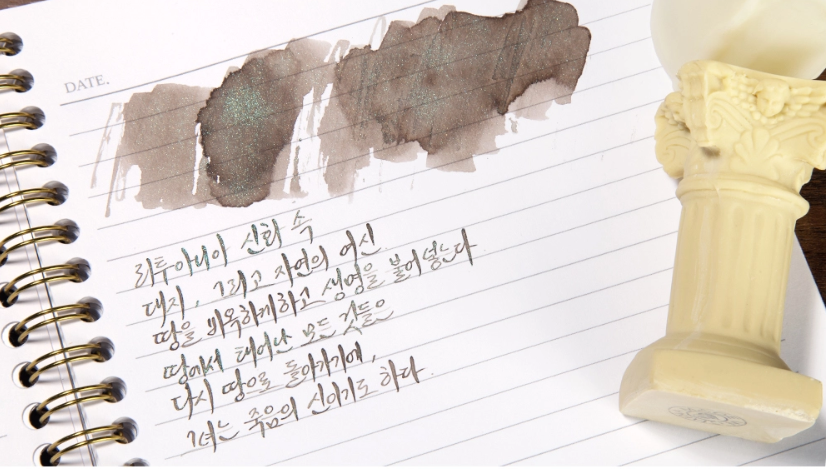 DATE.
리투아니아 신화 속
대지, 그리고 자연의 여신
땅을 비옥하게하고 생명을 불어넣는다
땅에서 태어난 모든 것들은
다시 땅으로 돌아가기에,
그녀는 죽음의 신이기도 하다.